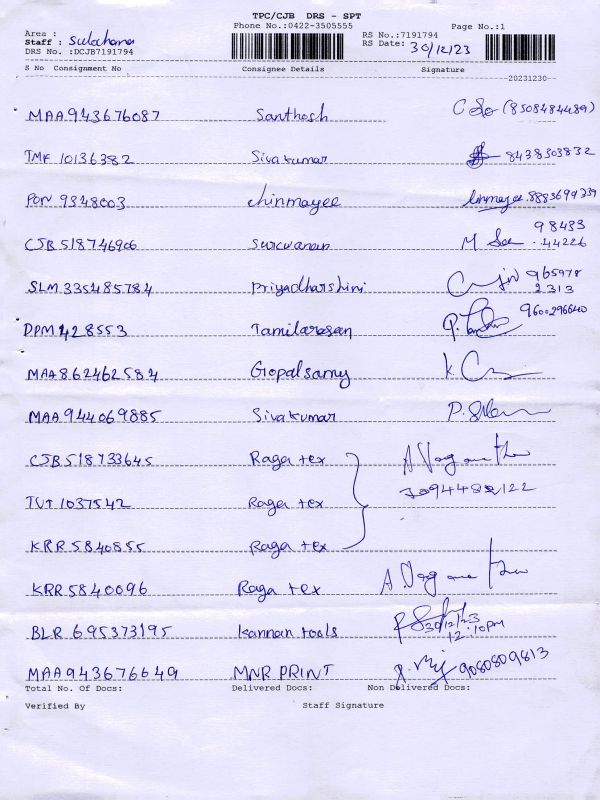 TPC/CJB DRS - SPT
Phone No.:0422-3505555
Page No.:1
Area :
RS No.:7191794
Staff :
RS Date: 30/12/23
DRS No. :DCJB7191794
S No Consignment No Consignee Details Signature
20231230
MAA943676087 Santhosh (8508484489)
TMF 10136382 Sivakumar 8438303832
PON 9348003 chinmayee chinmayee 8883699339
CJB 518746906 Saravanan 98433 44226
SLM 335485784 Priyadharshini 965978 2313
DPM 428553 Tamilarasan 9600296640
MAA862462584 Gopalsamy
MAA944069885 Sivakumar
CJB518733645 Raga tex
TVT 1037542 Raga tex
KRR 5840855 Raga tex
KRR 5840096 Raga tex
BLR 695373195 kannan tools 30/12/23
12:10pm
MAA943676649 MNR PRINT 9080809813
Total No. Of Docs: Delivered Docs: Non Delivered Docs:
Verified By Staff Signature